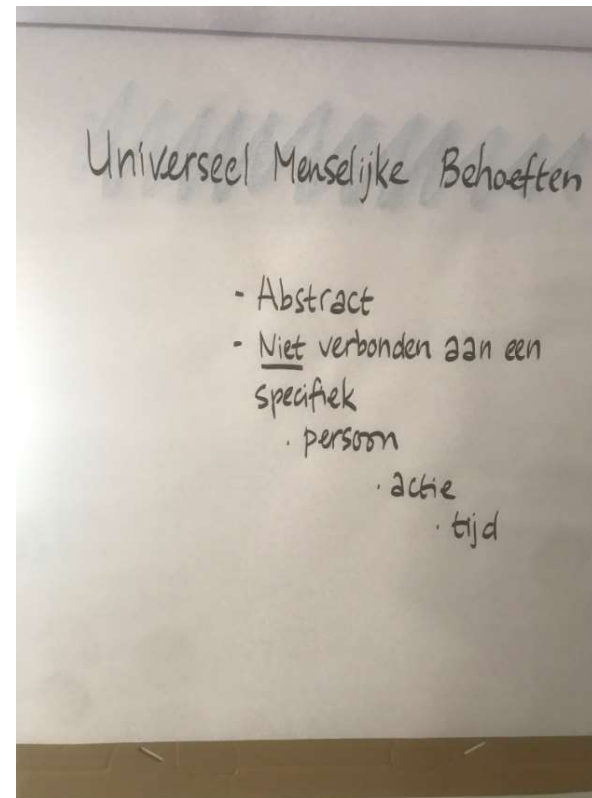 Universeel Menselijke Behoeften
- Abstract
- Niet verbonden aan een
specifiek
· persoon
· actie
· tijd